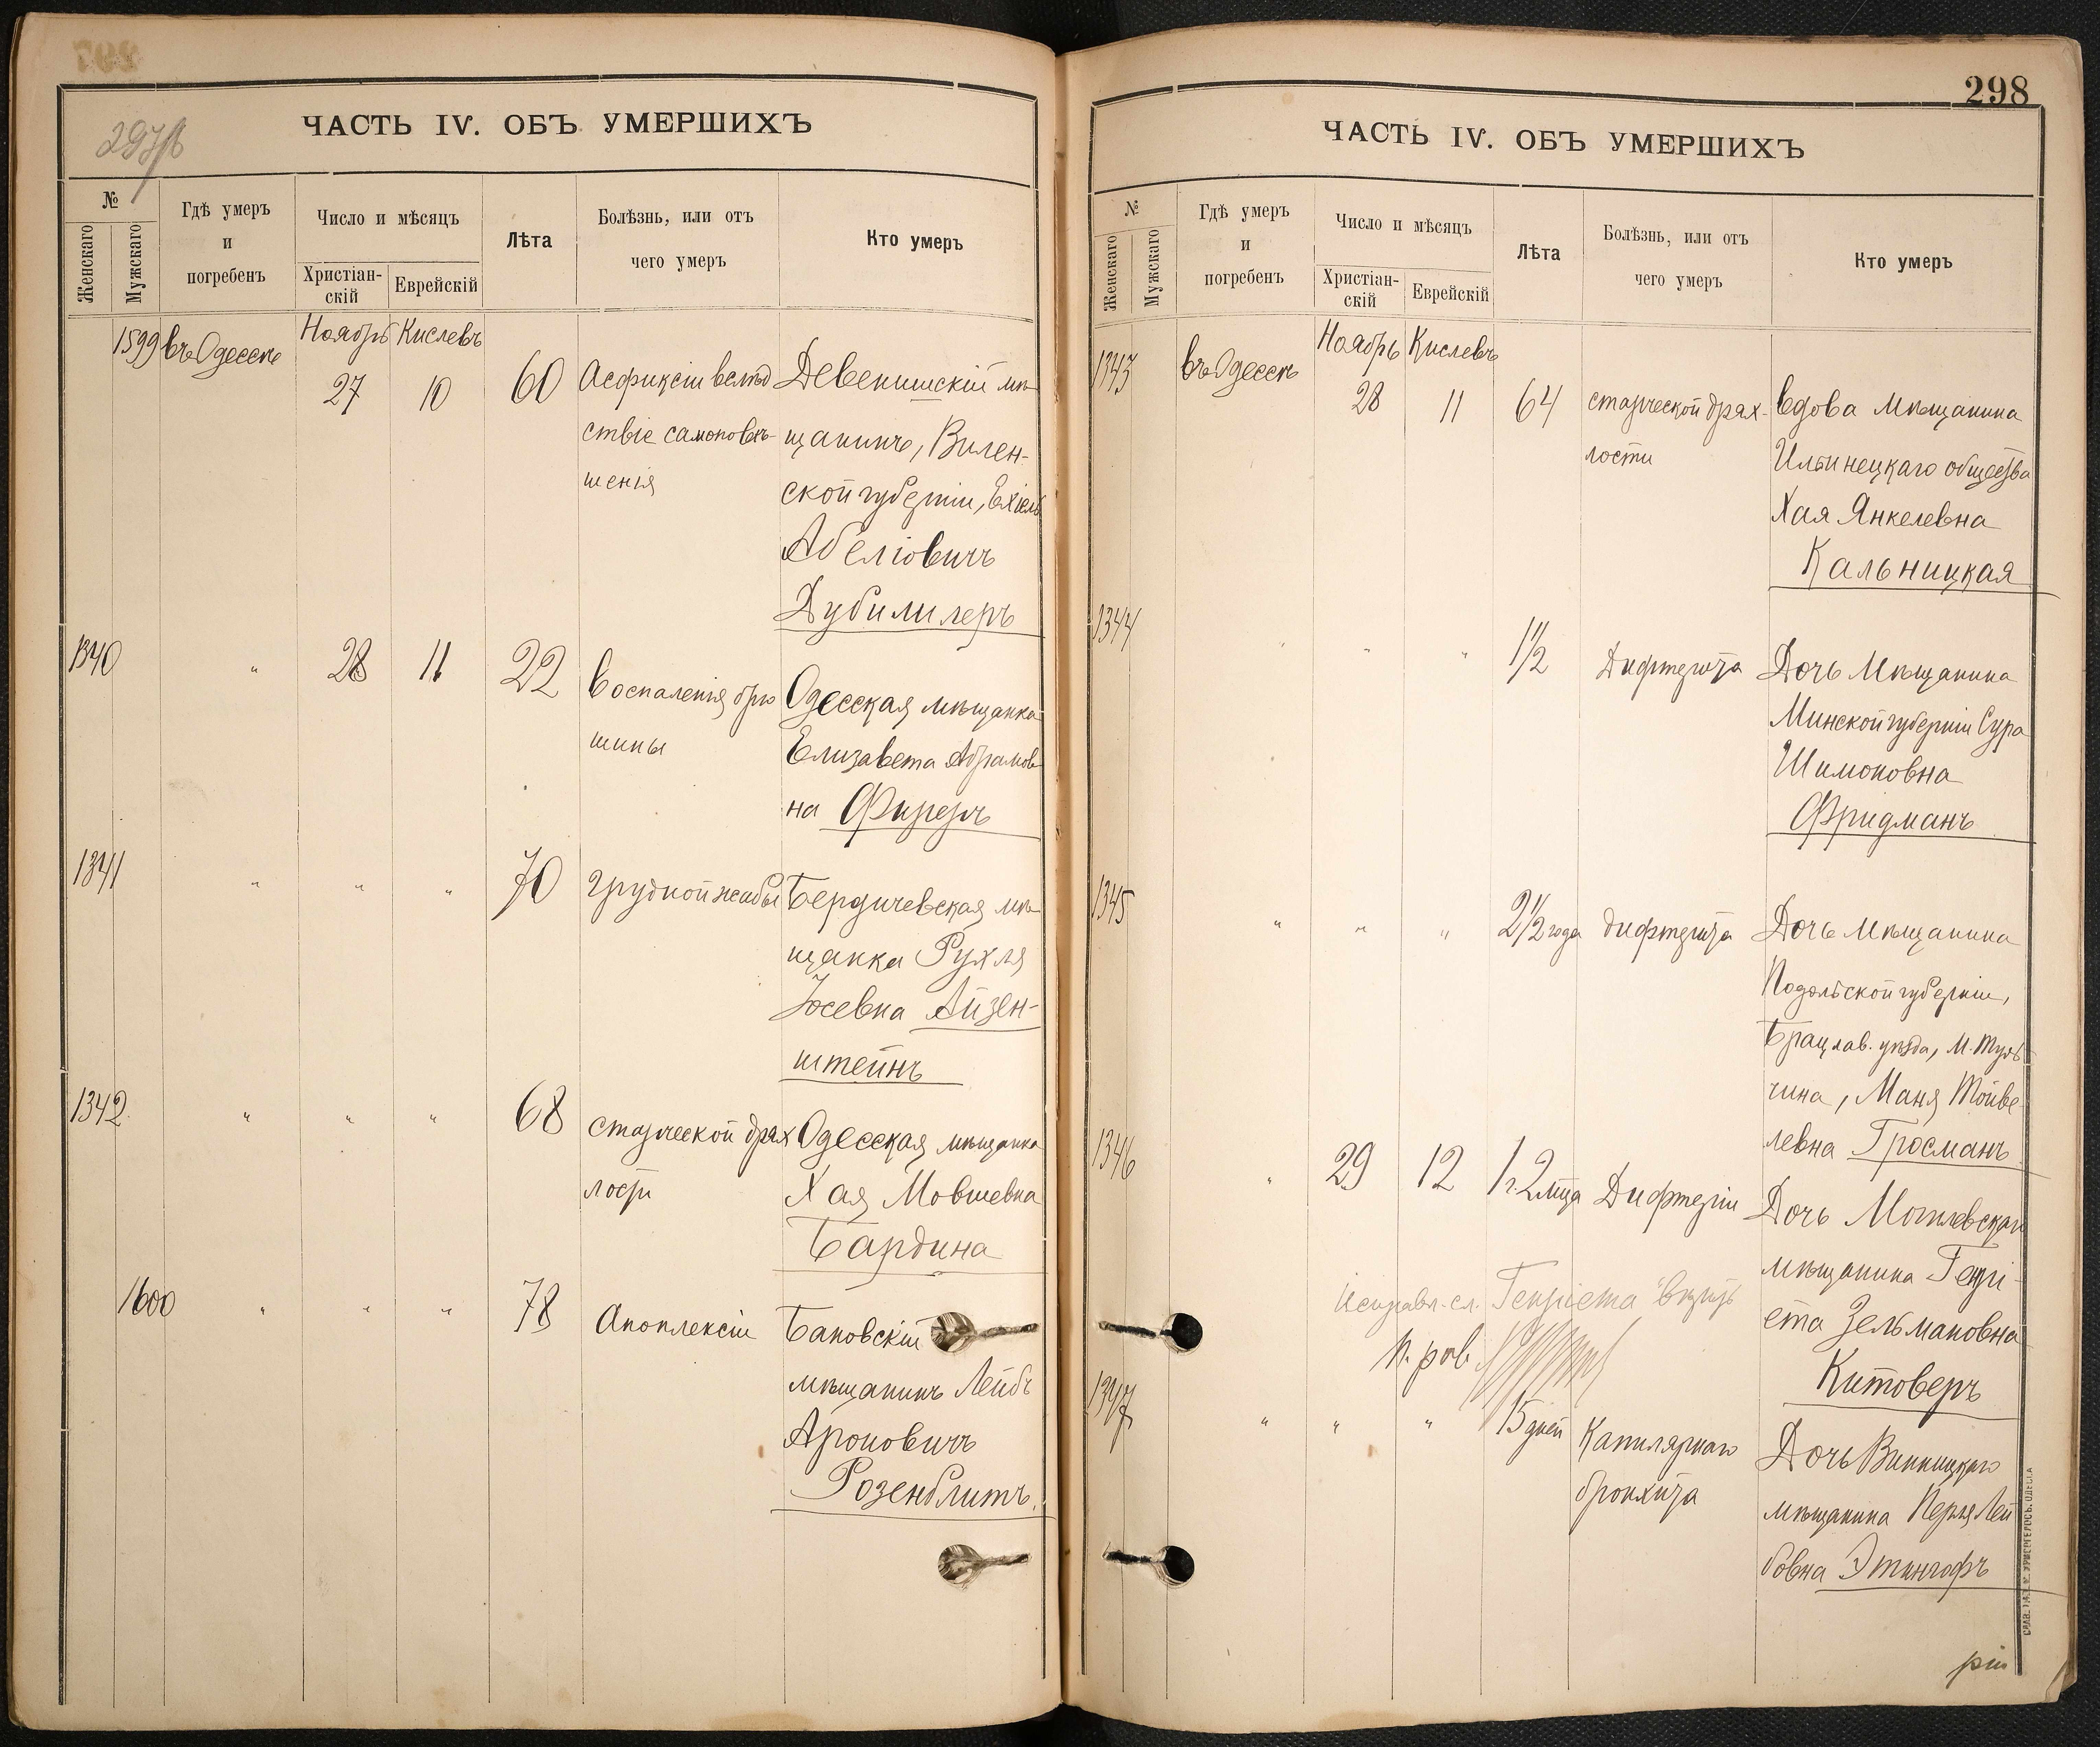 298
ЧАСТЬ IV. ОБЪ УМЕРШИХЪ
№
Женскаго
Мужскаго
Гдѣ умеръ
и
погребенъ
Число и мѣсяцъ
Христіан-
скій
Еврейскій
Лѣта
Болѣзнь, или отъ
чего умеръ
Кто умеръ
1599 въ Одессѣ
Ноябрь Кислевъ
27 10 60
Асфиксіи вслѣд
ствіе самоповѣ-
шенія
Девенишскій мѣ
щанинъ, Вилен-
ской губерніи, Ехіель
Абеліовичъ
Дубилилеръ
1340 " 28 11 22
Воспаленія брю
шины
Одесская мѣщанка
Елизавета Абрамов
на Фиреръ
1341 " " " 70
Грудной жабы
Бердичевская мѣ
щанка Рухля
Іосевна Айзен-
штейнъ
1342 " " " 68
старческой дрях
лости
Одесская мѣщанка
Хая Мовшевна
Бардина
1600 " " " 78
Апоплексіи
Бановскій
мѣщанинъ Лейбъ
Ароновичъ
Розенблитъ.
ЧАСТЬ IV. ОБЪ УМЕРШИХЪ
№
Женскаго
Мужскаго
Гдѣ умеръ
и
погребенъ
Число и мѣсяцъ
Христіан-
скій
Еврейскій
Лѣта
Болѣзнь, или отъ
чего умеръ
Кто умеръ
1343 въ Одессѣ
Ноябрь Кислевъ
28 11 64
старческой дрях-
лости
Вдова мѣщанина
Ильинецкаго общества
Хая Янкелевна
Кальницкая
1344 " " " 1 1/2
Дифтерита
Дочь мѣщанина
Минской губерніи Сура
Шимоновна
Фридманъ
1345 " " " 2 1/2 года
дифтерита
Дочь мѣщанина
Подольской губерніи,
Брацлав. уѣзда, м. Туль
чина, Маня Тойве
левна Гросманъ
1346 " 29 12 1 г. 2 м-ца
Дифтеріи
Дочь Могилевскаго
мѣщанина Генрі-
ета Зельмановна
Китоверъ
Исправл. сл. Генріета вѣрить
п. рав.
1347 " " " 15 дней
Капилярнаго
бронхита
Дочь Винницкаго
мѣщанина Перля Лей
бовна Этингофъ